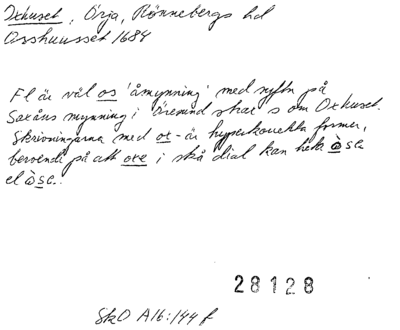 Oxhuset, Örja, Rönnebergs hd
Osshuusset 1684
Fl är väl os 'åmynning' med syftn på
Saxåns mynning i Öresund strax s om Oxhuset.
Skrivningarna med ox- är hyperkorrekta former,
beroende på att oxe i skå dial kan heta òse
el òse.
28128
SkO A16:144 f